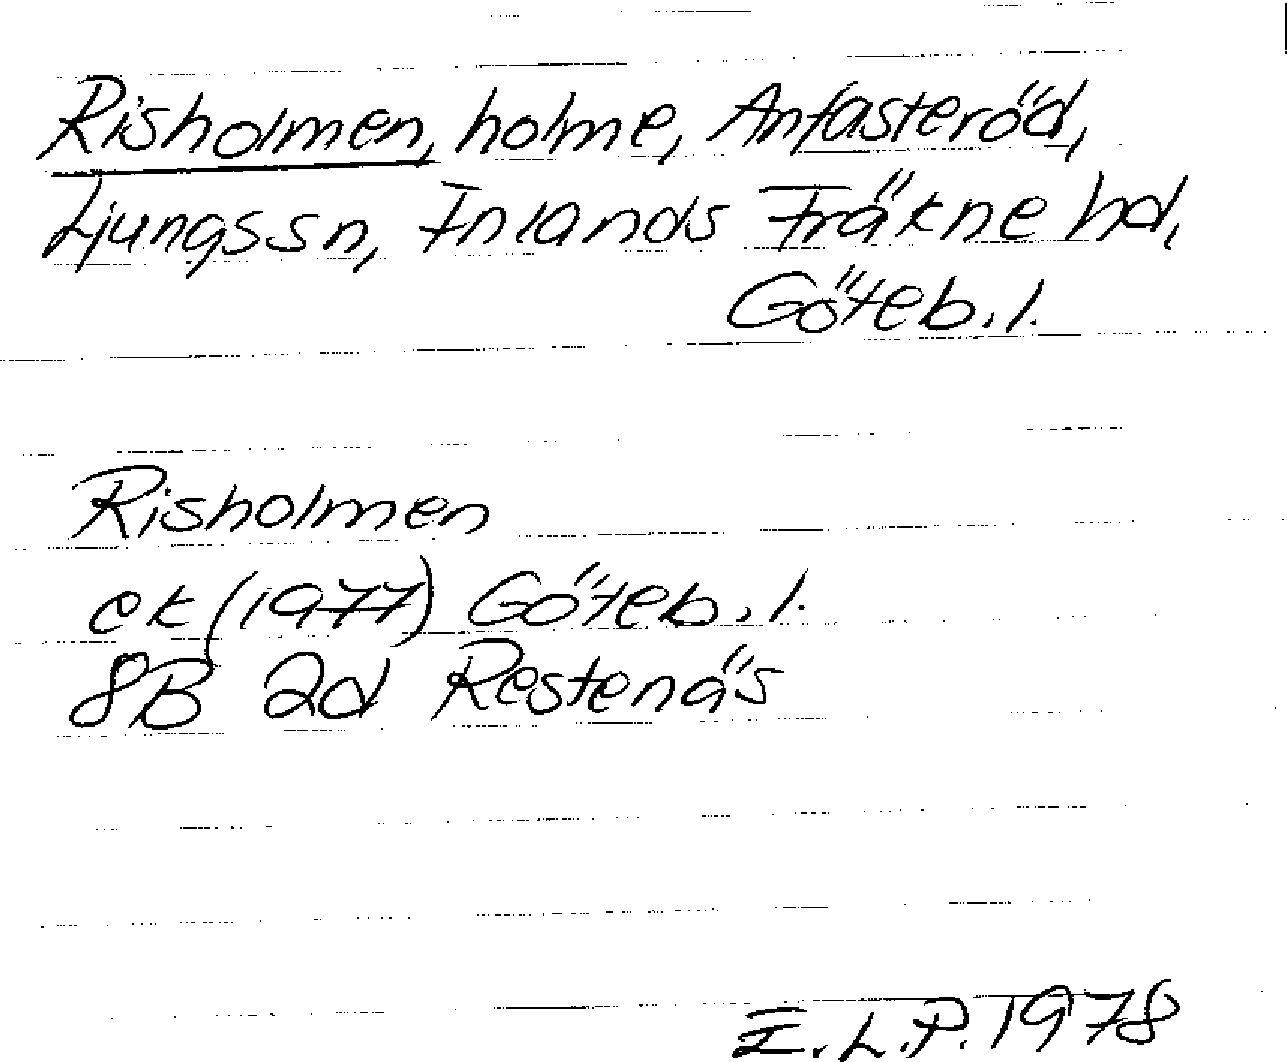 Risholmen, holme, Anfasteröd,
Ljungs sn, Inlands Fräkne hd,
Göteb. l.
Risholmen
ek (1977) Göteb. l.
8B 2d Restenäs
I. L. P. 1978